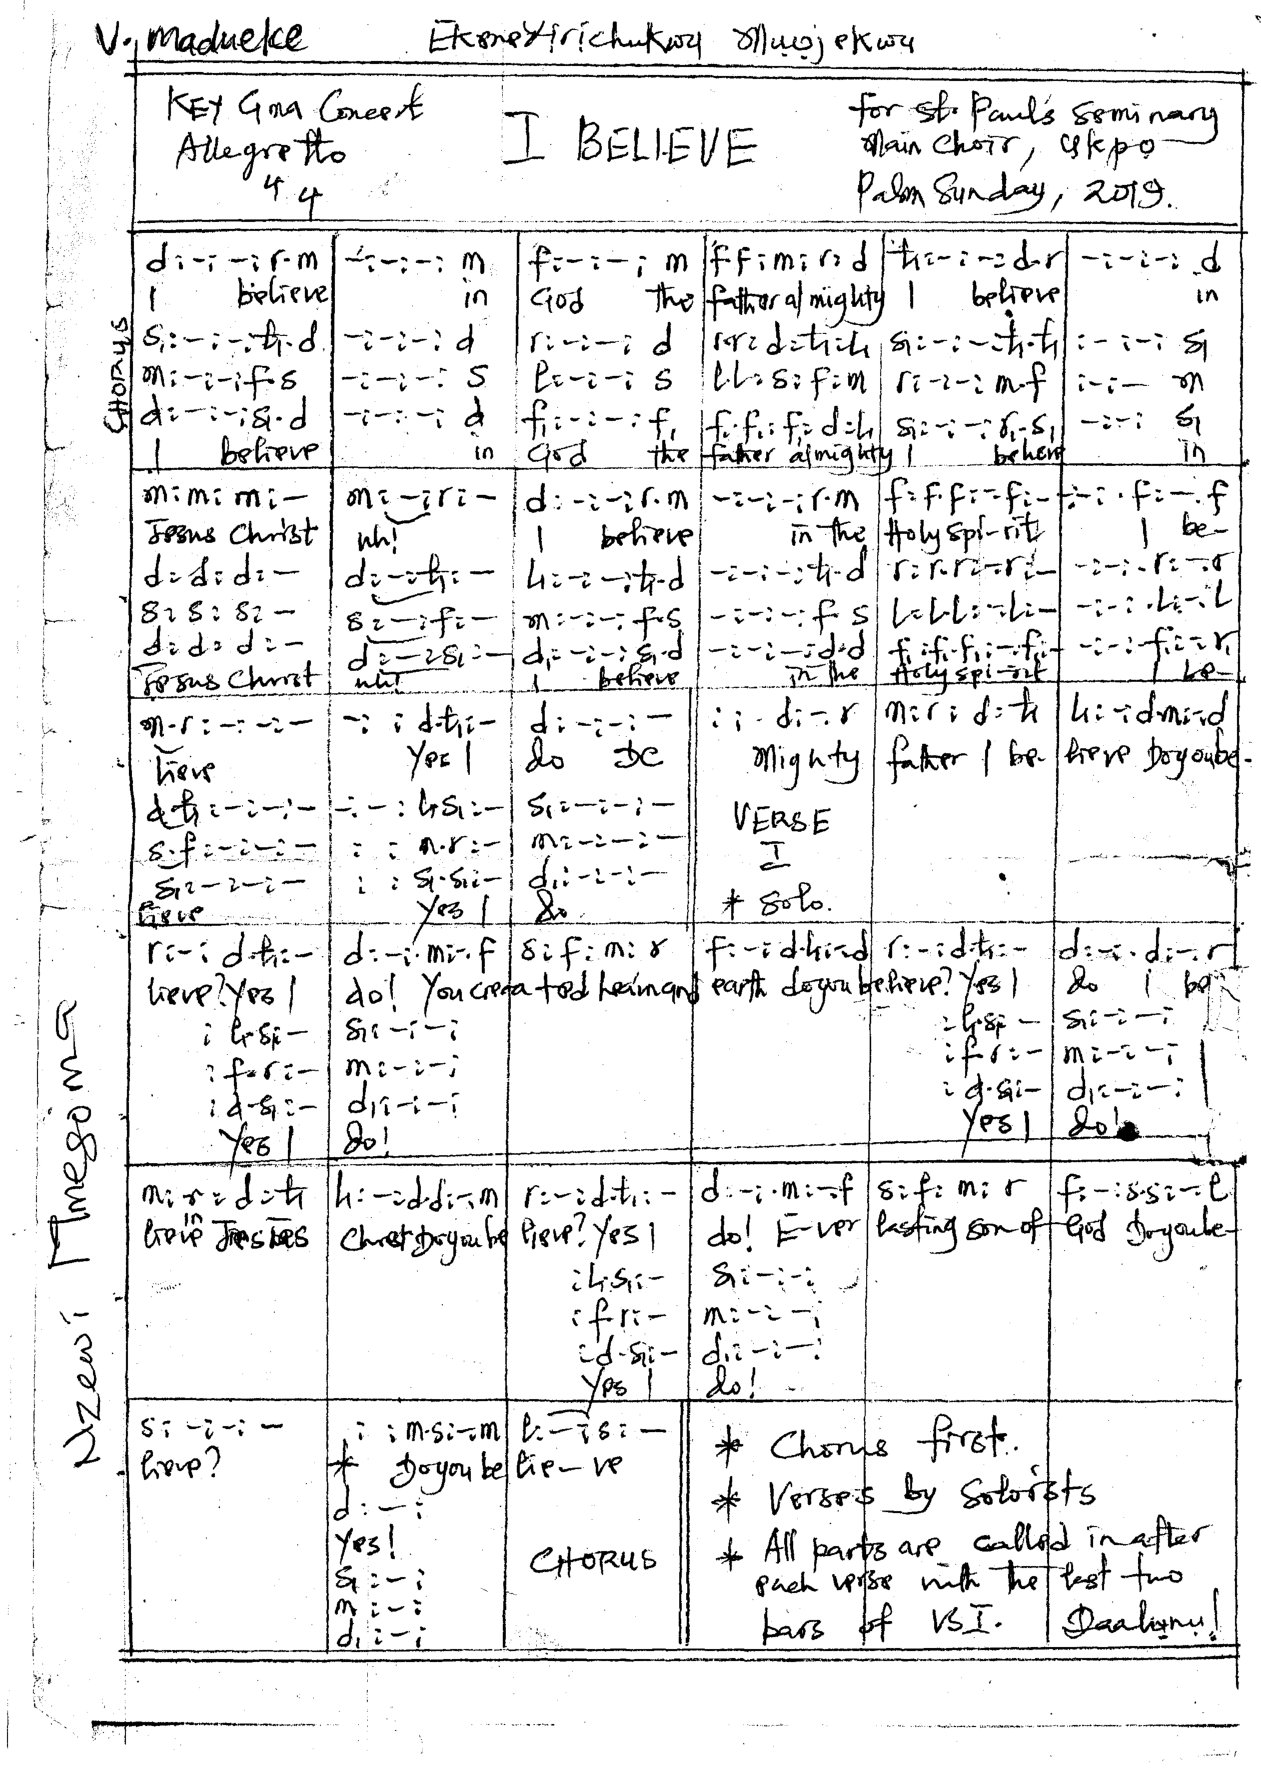 V. Madueke Ekenedirichukwu Muojekwu
KEY Gma Concert
Allegretto
4 4
I BELIEVE
for St. Paul's Seminary
Main Choir, Ukpo
Palm Sunday, 2019.
CHORUS
d:-:-:r.m | -:-:-: m | f:-:-: m | f.f:m:r:d | t₁:-:-:d.r | -:-:-:.d
I believe in God the father almighty I believe in
s₁:-:-:t₁.d | -:-:-: d | r:-:-: d | r.r:d:t₁:l₁ | s₁:-:-:t₁.t₁ | :-:-: s₁
m:-:-:f.s | -:-:-: s | l:-:-: s | l.l:s:f:m | r:-:-:m.f | :-:- m
d:-:-:s₁.d | -:-:-: d | f₁:-:-: f₁ | f₁.f₁:f₁:d:l₁ | s₁:-:-:r₁.s₁ | -:-: s₁
I believe in God the father almighty I believe in
m:m:m:- | m:-:r:- | d:-:-:r.m | -:-:-:r.m | f:f.f:-f:- | -:-:.f:-.f
Jesus Christ uh! I believe in the Holy Spi-rit I be-
d:d:d:- | d:-:t₁:- | l₁:-:-:t₁.d | -:-:-:t₁.d | r:r.r:-r:- | -:-:.r:-.r
s:s:s:- | s:-:f:- | m:-:-:f.s | -:-:-:f.s | l:l.l:-l:- | -:-:.l:-.l
d:d:d:- | d:-:s₁:- | d₁:-:-:s₁.d | -:-:-:d.d | f₁:f₁.f₁:-f₁:- | -:-:.f₁:-.r₁
Jesus Christ uh! I believe in the Holy Spi-rit I be-
m.r:-:-:- | -: :d.t₁:- | d:-:-:- | : :.d:-.r | m:r:d:t₁ | l₁:-:d.m:-.d
lieve Yes I do DC Mighty father I be- lieve Do you be-
d.t₁:-:-:- | -:-:l₁.s₁:- | s₁:-:-:-
VERSE
I
s.f:-:-:- | : :m.r:- | m:-:-:-
s₁:-:-:- | : :s₁.s₁:- | d₁:-:-:-
lieve Yes I do
* Solo.
r:-:d.t₁:- | d:-:.m:-.f | s:f:m:r | f:-:d.l₁:-.d | r:-:d.t₁:- | d:-:.d:-.r
lieve? Yes I do! You created heaven and earth do you believe? Yes I do I be
:l₁.s₁:- | s₁:-:-: | :l₁.s₁:- | s₁:-:-:
:f.r:- | m:-:-: | :f.r:- | m:-:-:
:d.s₁:- | d₁:-:-: | :d.s₁:- | d₁:-:-:
Yes I do! Yes I do!
m:r:d:t₁ | l₁:-:d.d:-.m | r:-:d.t₁:- | d:-:.m:-.f | s:f:m:r | f:-:s.s:-.l
lieve in Jesus Christ Do you be lieve? Yes I do! E-ver lasting son of God Do you be-
:l₁.s₁:- | s₁:-:-:
:f.r:- | m:-:-:
:d.s₁:- | d₁:-:-:
Yes I do!
s:-:-:- | : :m.s:-.m | l:-:s:-
lieve? * Do you be lie-ve
d:-:
Yes!
s₁:-:
m:-:
d₁:-:
CHORUS
* Chorus first.
* Verses by Soloists
* All parts are called in after
each verse with the last two
bars of VSI. Daalụnụ!
Nzewi Mmesoma